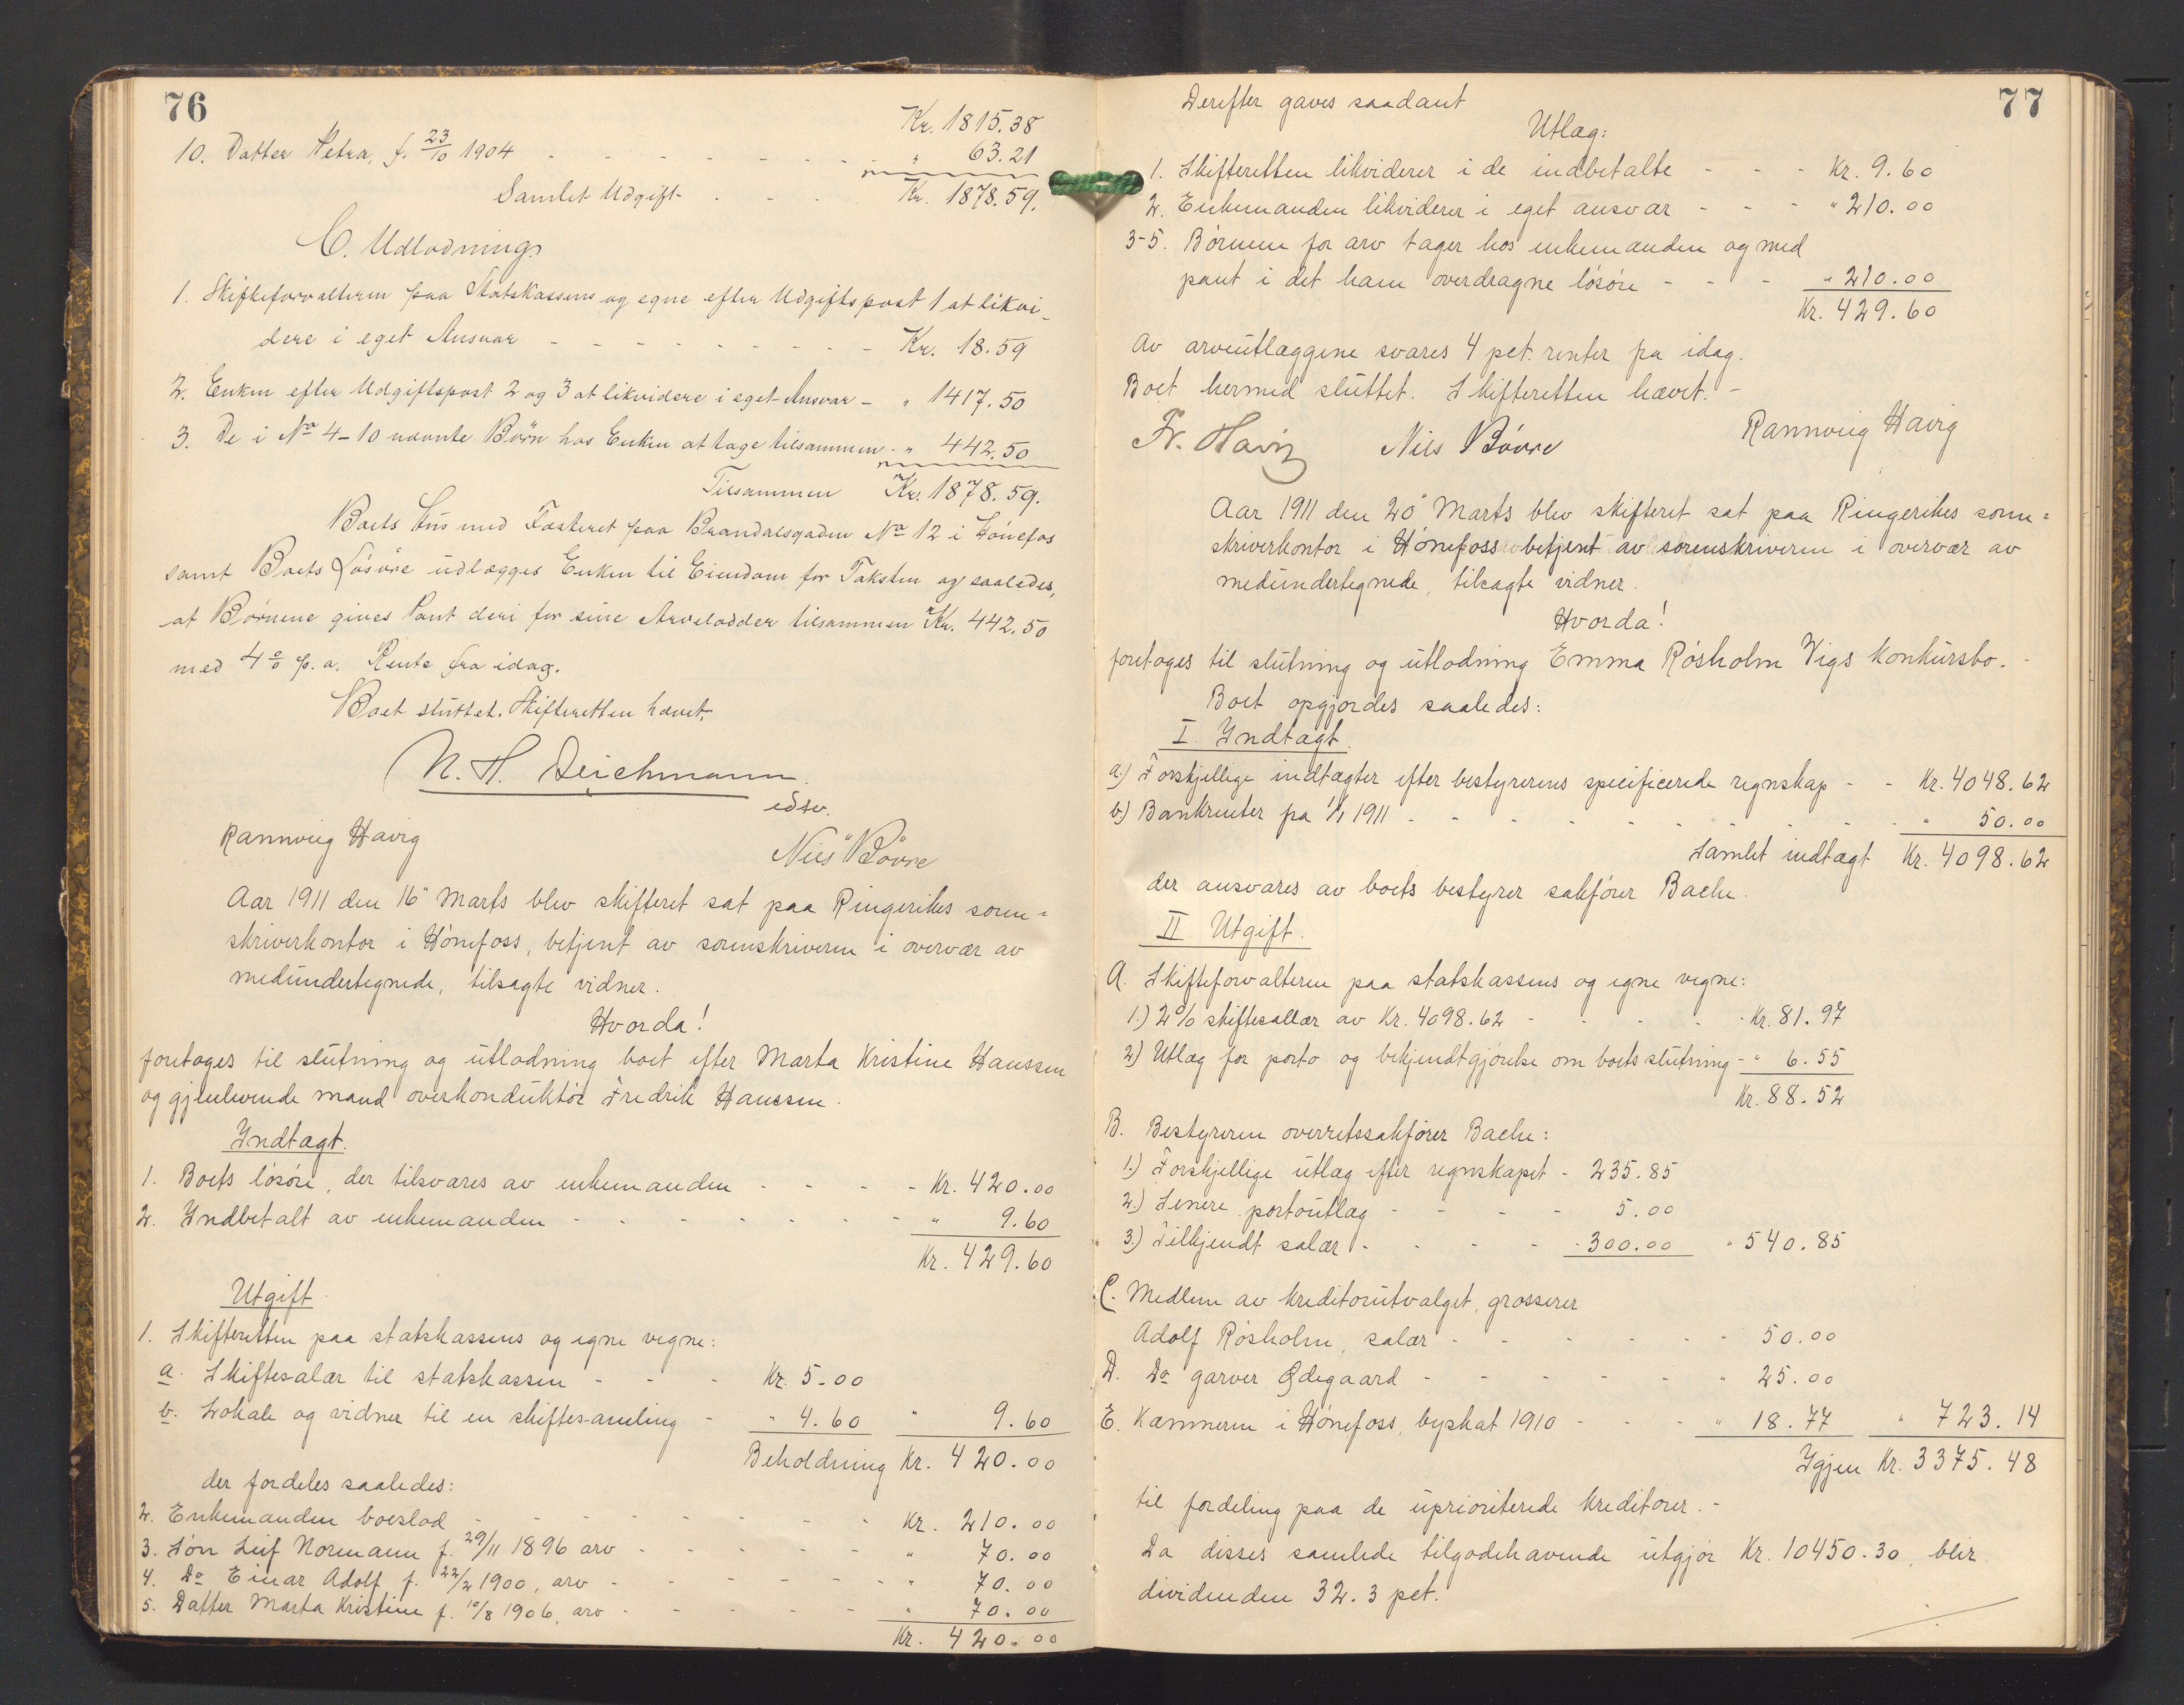 76
Kr. 1815.38
10. Datter Petra, f. 23/10 1904 - - - - - - - " 63.21
Samlet Udgift - - - Kr. 1878.59.
C. Udlodning.
1. Skifteforvalteren paa Statskassens og egne efter Udgiftspost 1 at likvi-
dere i eget Ansvar - - - - - - - - - Kr. 18.59
2. Enken efter Udgiftspost 2 og 3 at likvidere i eget Ansvar - " 1417.50
3. De i No 4-10 nævnte Børn hos Enken at tage tilsammen - " 442.50
Tilsammen Kr. 1878.59.
Boets Hus med Fæsteret paa Brandalsgaden No 12 i Hønefos
samt Boets Løsøre udlægges Enken til Eiendom for Taksten og saaledes,
at Børnene gives Pant deri for sine Arvelodder tilsammen Kr. 442.50
med 4 % p.a. Rente fra idag.
Boet sluttet. Skifteretten hævet.
N. H. Deichmann.
edsv.
Rannveig Havig
Nils Bøvre
Aar 1911 den 16" Marts blev skifteret sat paa Ringerikes soren=
skriverkontor i Hønefoss, betjent av sorenskriveren i overvær av
medundertegnede, tilsagte vidner.
Hvorda!
foretages til slutning og utlodning boet efter Marta Kristine Hanssen
og gjenlevende mand overkonduktør Fredrik Hanssen.
Indtægt.
1. Boets løsøre, der tilsvares av enkemanden - - - - Kr. 420.00
2. Indbetalt av enkemanden - - - - - - - " 9.60
Kr. 429.60
Utgift.
1. Skifteretten paa statskassens og egne vegne:
a. Skiftesalær til statskassen - - - Kr. 5.00
b. Lokale og vidner til en skiftesamling - " 4.60 " 9.60
Beholdning Kr. 420.00
der fordeles saaledes:
2. Enkemanden boeslod - - - - - - - - Kr. 210.00
3. Søn Leif Normann f. 29/11 1896 arv - - - - - " 70.00
4. Do Einar Adolf f. 22/2 1900, arv - - - - - - " 70.00
5. Datter Marta Kristine f. 10/8 1906, arv - - - - - " 70.00
Kr. 420.00
77
Derefter gaves saadant
Utlæg:
1. Skifteretten likviderer i de indbetalte - - - Kr. 9.60
2. Enkemanden likviderer i eget ansvar - - - " 210.00
3-5. Børnene for arv tager hos enkemanden og med
pant i det ham overdragne løsøre - - - " 210.00
Kr. 429.60
Av arveutlæggene svares 4 pct. renter fra idag.
Boet hermed sluttet. Skifteretten hævet. -
Fr. Havig Nils Bøvre Rannveig Havig
Aar 1911 den 20" Marts blev skifteret sat paa Ringerikes soren=
skriverkontor i Hønefoss betjent av sorenskriveren i overvær av
medundertegnede, tilsagte vidner.
Hvorda!
foretages til slutning og utlodning Emma Røsholm Vigs konkursbo. -
Boet opgjordes saaledes:
I. Indtægt.
a.) Forskjellige indtægter efter bestyrerens specificerede regnskap - - Kr. 4048.62
b.) Bankrenter fra 1/1 1911 - - - - - - - - - " 50.00
Samlet indtægt Kr. 4098.62
der ansvares av boets bestyrer sakfører Bache.
II Utgift.
A. Skifteforvalteren paa statskassens og egne vegne:
1.) 2% skiftesallær av Kr. 4098.62 - - - - - Kr. 81.97
2.) Utlæg for porto og bekjendtgjørelse om boets slutning - " 6.55
Kr. 88.52
B. Bestyreren overretssakfører Bache:
1.) Forskjellige utlæg efter regnskapet - 235.85
2.) Senere portoutlæg - - - - 5.00
3.) Tilkjendt salær - - - - 300.00 " 540.85
C. Medlem av kreditorutvalget, grosserer
Adolf Røsholm, salær - - - - - " 50.00
D. Do garver Ødegaard - - - - - " 25.00
E. Kæmneren i Hønefoss, byskat 1910 - - - " 18.77 " 723.14
Igjen Kr. 3375.48
til fordeling paa de uprioriterede kreditorer. -
Da disses samlede tilgodehavende utgjør Kr. 10450.30, blir
dividenden 32.3 pct.